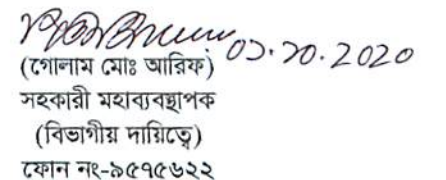 ০১.১০.2020
(গোলাম মোঃ আরিফ)
সহকারী মহাব্যবস্থাপক
(বিভাগীয় দায়িত্বে)
ফোন নং-৯৫৭৫৬২২